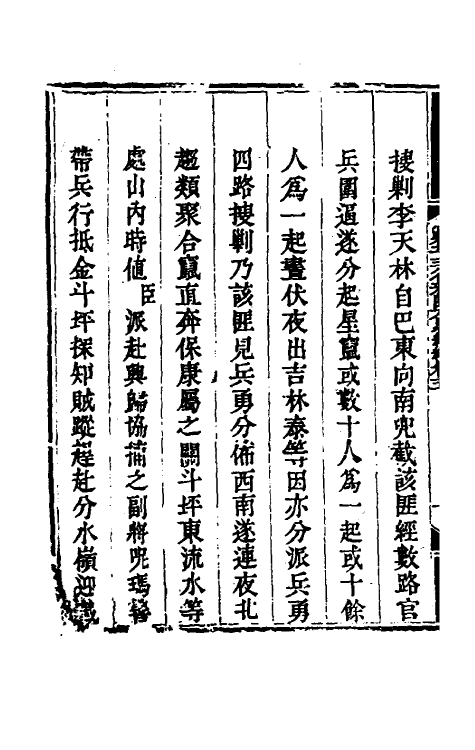 搜剿李天林自巴東向南兜截該匪經數路官
兵圍逼遂分起星竄或數十人爲一起或十餘
人爲一起晝伏夜出吉林泰等因亦分派兵勇
四路搜剿乃該匪見兵勇分佈西南遂連夜北
趨類聚合竄直奔保康屬之關斗坪東流水等
處山內時值臣派赴興歸協捕之副將呢瑪
帶兵行抵金斗坪探知賊蹤趕赴分水嶺迎截